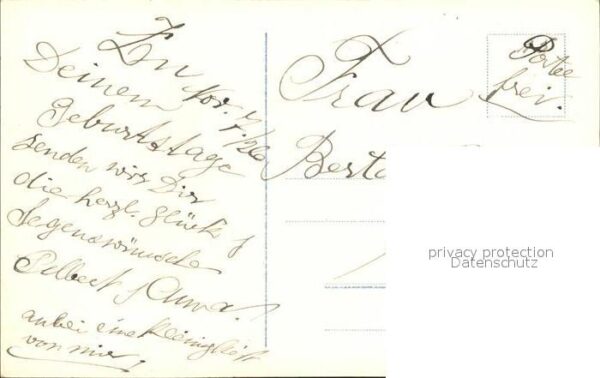 Zu
Deinem
Geburtstage
senden wir Dir
die herzl. Glück &
Segenswünsche
Albert & Anna.
anbei eine Kleinigkeit
von mir!
Nov. 7/26
Frau
Berta
Portio
frei.
privacy protection
Datenschutz